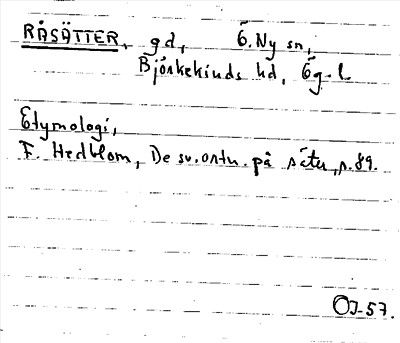 RÅSÄTTER, gd, Ö. Ny sn,
Björkekinds hd, Ög. l.
Etymologi,
F. Hedblom, De sv. ortn. på säter, s. 89.
OJ-57.